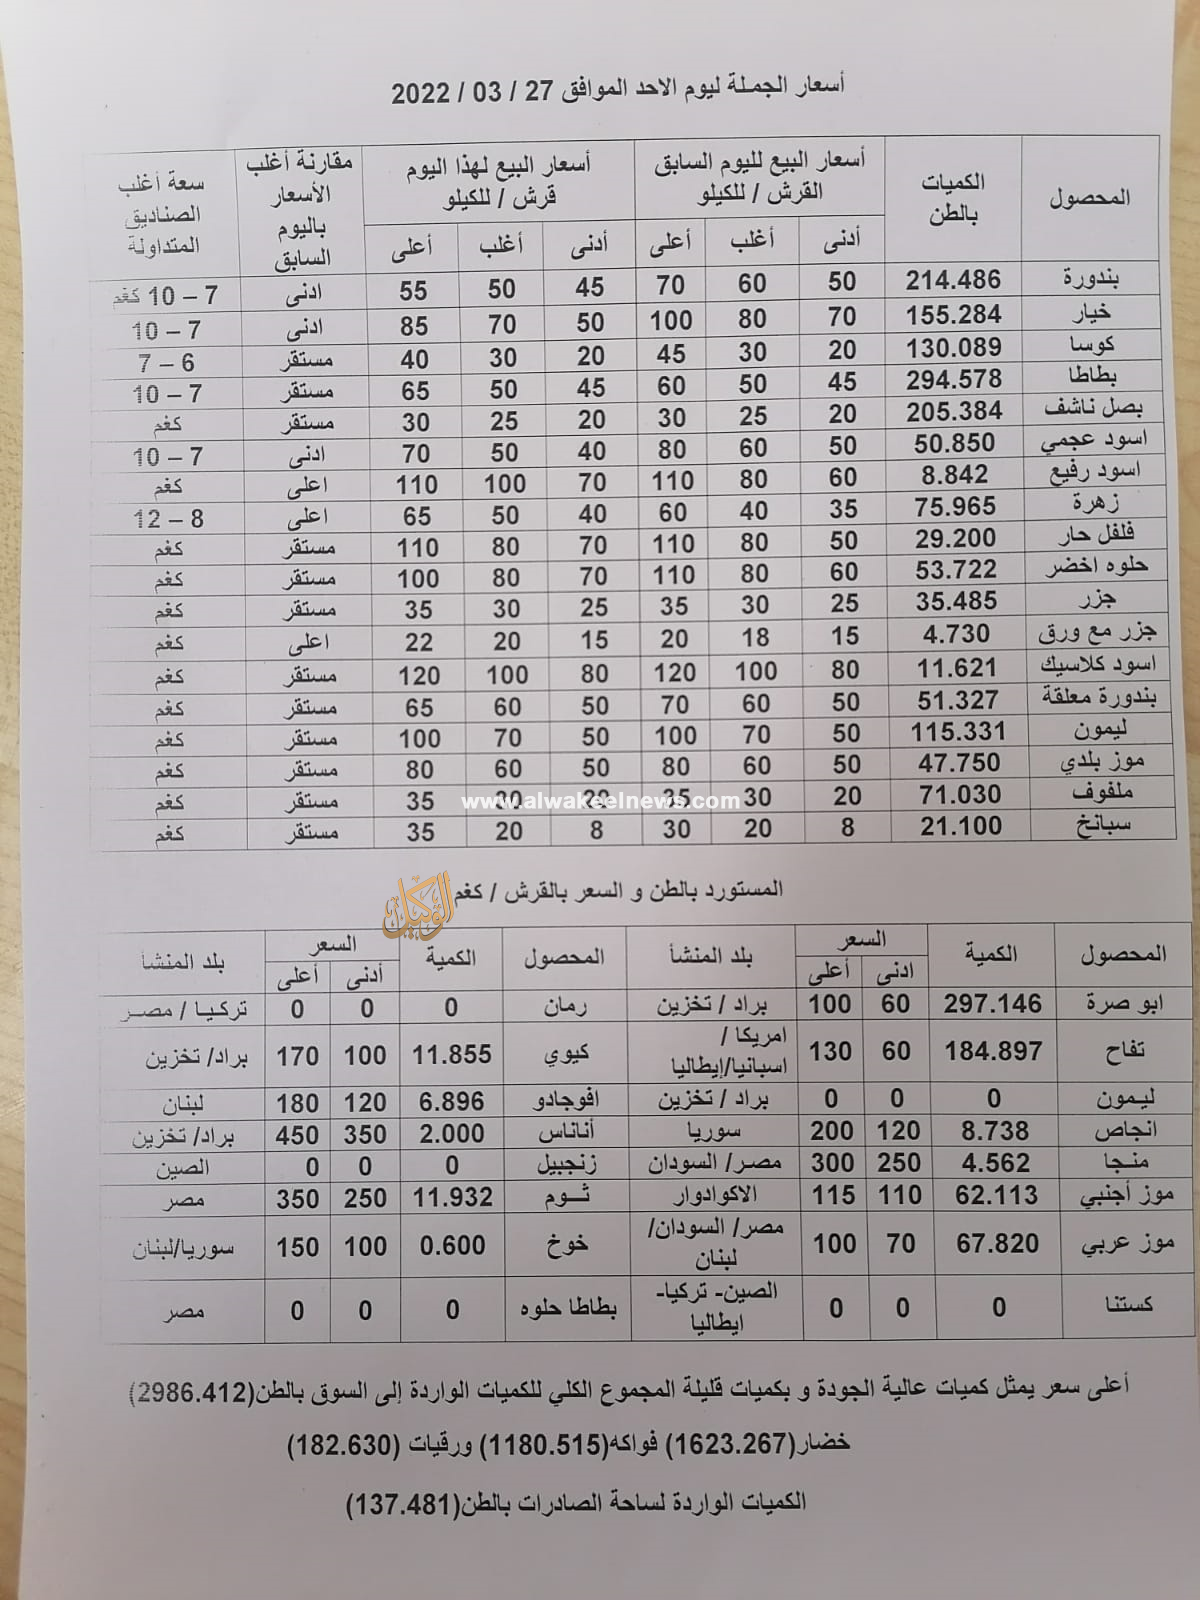 أسعار الجملة ليوم الاحد الموافق 27 / 03 / 2022
المحصول الكميات بالطن أسعار البيع لليوم السابق القرش / للكيلو أسعار البيع لهذا اليوم قرش / للكيلو مقارنة أغلب الأسعار باليوم السابق سعة أغلب الصناديق المتداولة
أدنى أغلب أعلى أدنى أغلب أعلى
بندورة 214.486 50 60 70 45 50 55 ادنى 7 – 10 كغم
خيار 155.284 70 80 100 50 70 85 ادنى 7 – 10
كوسا 130.089 20 30 45 20 30 40 مستقر 6 – 7
بطاطا 294.578 45 50 60 45 50 65 مستقر 7 – 10
بصل ناشف 205.384 20 25 30 20 25 30 مستقر كغم
اسود عجمي 50.850 50 60 80 40 50 70 ادنى 7 – 10
اسود رفيع 8.842 60 80 110 70 100 110 اعلى كغم
زهرة 75.965 35 40 60 40 50 65 اعلى 8 – 12
فلفل حار 29.200 50 80 110 70 80 110 مستقر كغم
حلوه اخضر 53.722 60 80 110 70 80 100 مستقر كغم
جزر 35.485 25 30 35 25 30 35 مستقر كغم
جزر مع ورق 4.730 15 18 20 15 20 22 اعلى كغم
اسود كلاسيك 11.621 80 100 120 80 100 120 مستقر كغم
بندورة معلقة 51.327 50 60 70 50 60 65 مستقر كغم
ليمون 115.331 50 70 100 50 70 100 مستقر كغم
موز بلدي 47.750 50 60 80 50 60 80 مستقر كغم
ملفوف 71.030 20 30 35 20 30 35 مستقر كغم
www.alwakeelnews.com
سبانخ 21.100 8 20 30 8 20 35 مستقر كغم
المستورد بالطن و السعر بالقرش / كغم
الوكيل
المحصول الكمية السعر بلد المنشأ المحصول الكمية السعر بلد المنشأ
ادنى أعلى أدنى أعلى
ابو صرة 297.146 60 100 براد / تخزين رمان 0 0 0 تركيا / مصر
تفاح 184.897 60 130 امريكا / اسبانيا/إيطاليا كيوي 11.855 100 170 براد/ تخزين
ليمون 0 0 0 براد / تخزين افوجادو 6.896 120 180 لبنان
انجاص 8.738 120 200 سوريا أناناس 2.000 350 450 براد/ تخزين
منجا 4.562 250 300 مصر/ السودان زنجبيل 0 0 0 الصين
موز أجنبي 62.113 110 115 الاكوادوار ثوم 11.932 250 350 مصر
موز عربي 67.820 70 100 مصر/ السودان/ لبنان خوخ 0.600 100 150 سوريا/لبنان
كستنا 0 0 0 الصين- تركيا- ايطاليا بطاطا حلوه 0 0 0 مصر
أعلى سعر يمثل كميات عالية الجودة و بكميات قليلة المجموع الكلي للكميات الواردة إلى السوق بالطن(2986.412)
خضار(1623.267) فواكه(1180.515) ورقيات (182.630)
الكميات الواردة لساحة الصادرات بالطن(137.481)